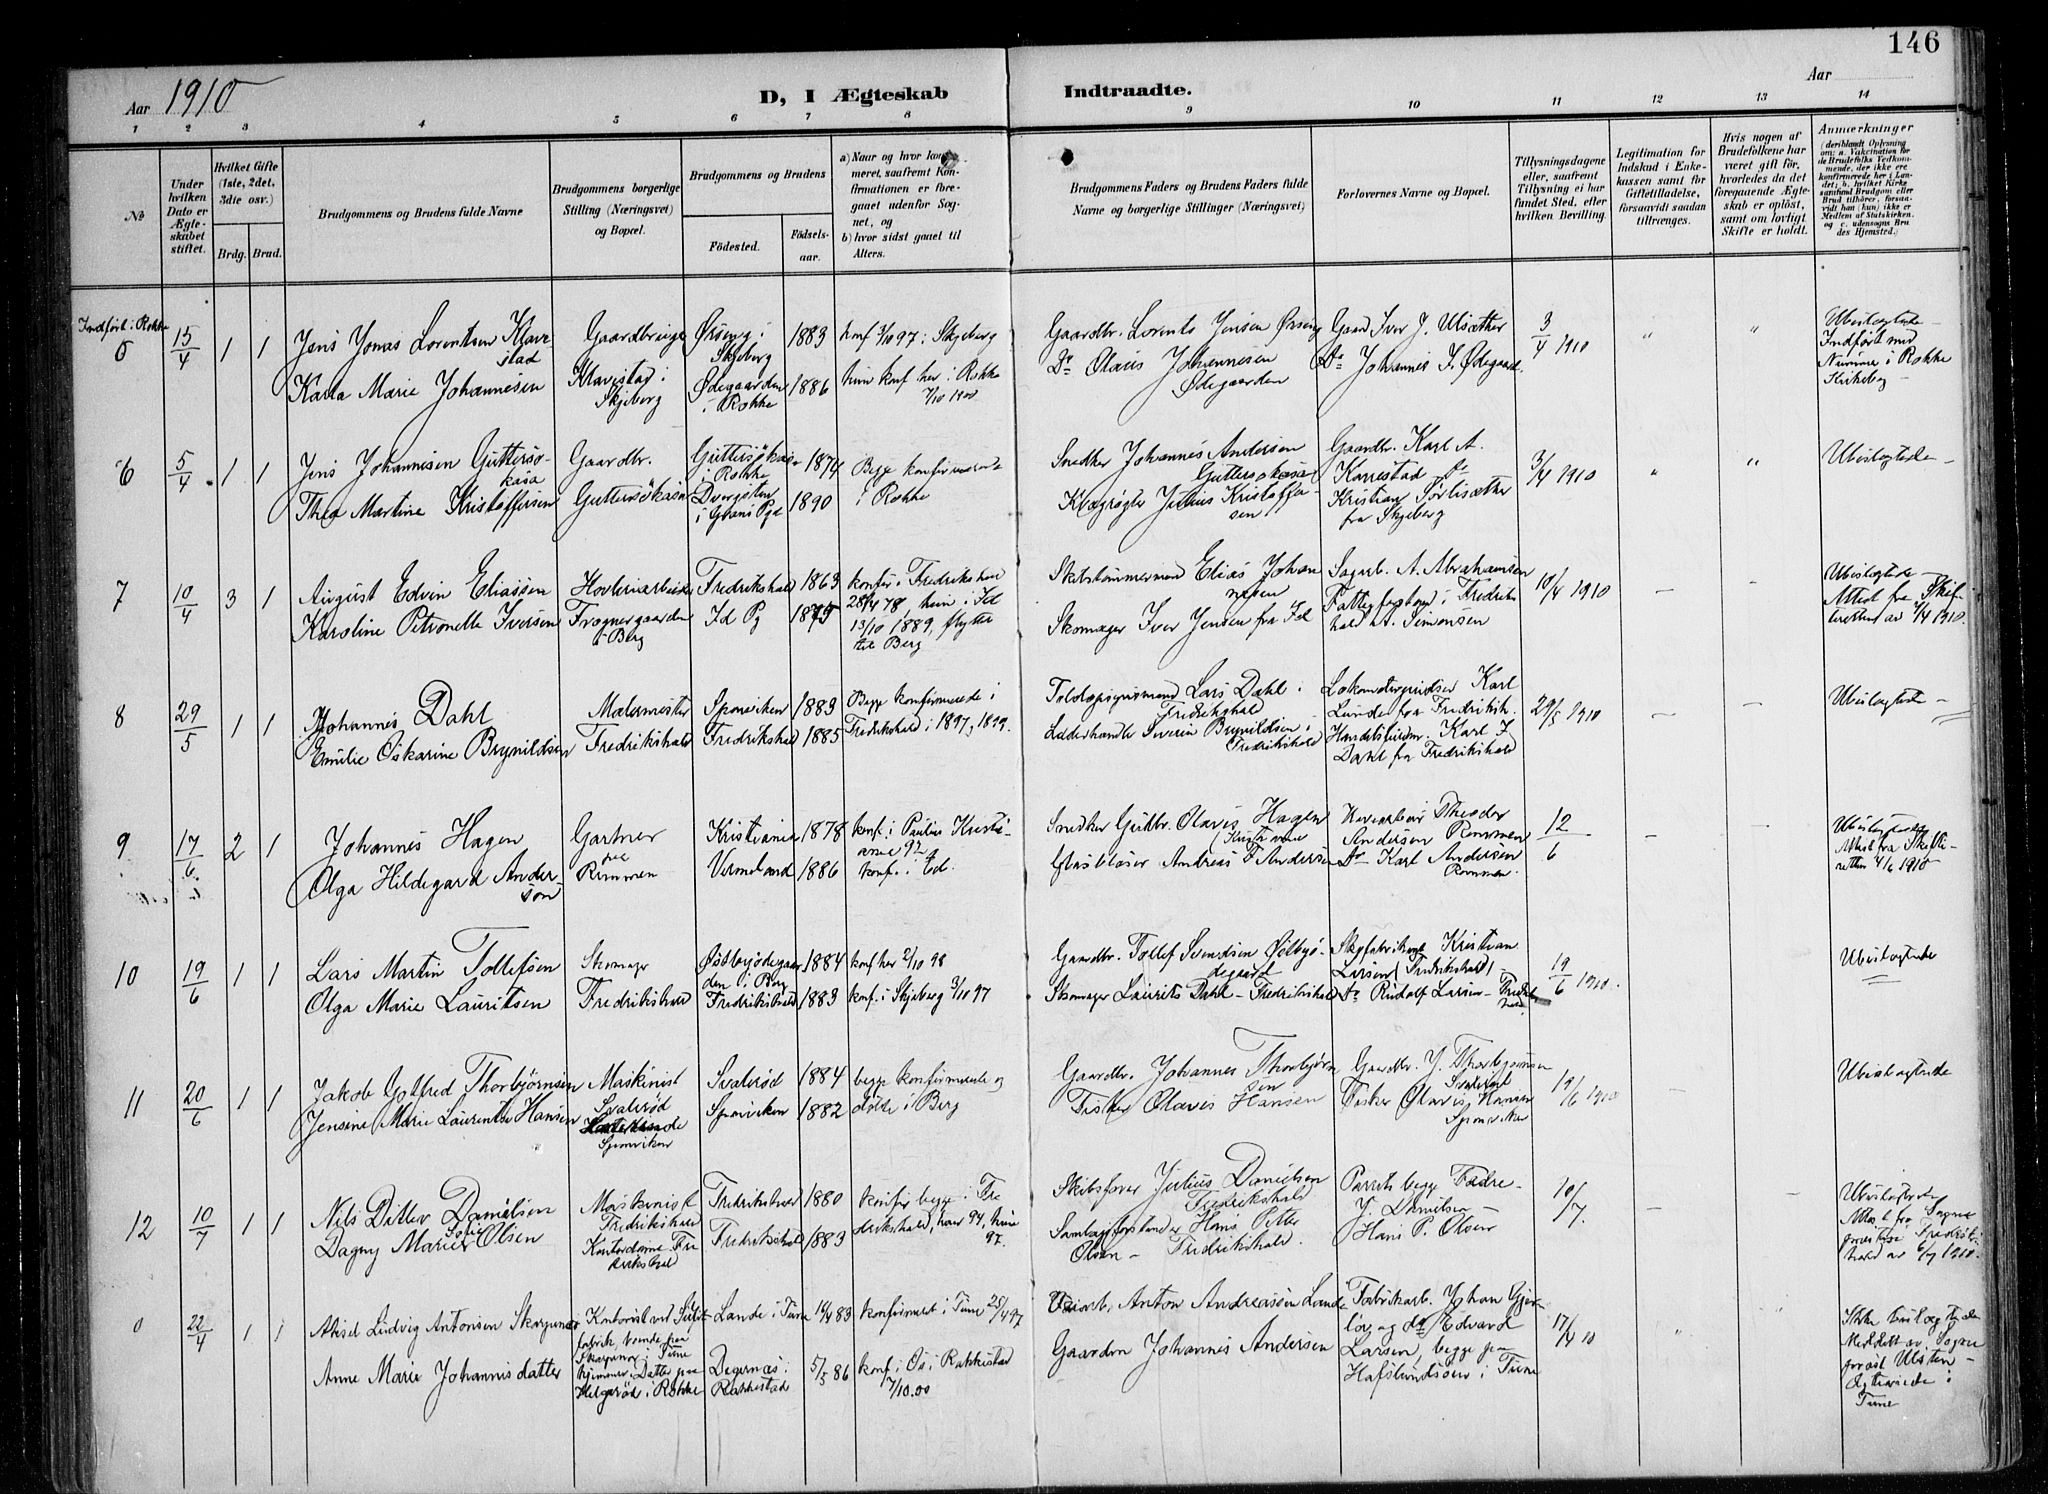 146
Aar 1910
D, I Ægteskab Indtraadte.
Aar
1 2 3 4 5 6 7 8 9 10 11 12 13 14
No
Under hvilken Dato er Ægteskabet stiftet.
Hvilket Gifte (1ste, 2det, 3die osv.)
Brdg. Brud.
Brudgommens og Brudens fulde Navne
Brudgommens borgerlige Stilling (Næringsvei) og Bopæl.
Brudgommens og Brudens
Fødested.
Fødselsaar.
a) Naar og hvor konfirmeret, saafremt Konfirmationen er foregaaet udenfor Sognet, og
b) hvor sidst gaaet til Alters.
Brudgommens Faders og Brudens Faders fulde Navne og borgerlige Stillinger (Næringsvei)
Forlovernes Navne og Bopæl.
Tillysningsdagene eller, saafremt Tillysning ei har fundet Sted, efter hvilken Bevilling.
Legitimation for Indskud i Enkekassen samt for Giftetilladelse, forsaavidt saadan tiltrænges.
Hvis nogen af Brudefolkene har været gift før, hvorledes da det foregaaende Ægteskab er opløst, samt om lovligt Skifte er holdt.
Anmærkninger
Indført i Rokke
5 15/4 1 1
Jens Jonas Lorentsen Klavestad
Karla Marie Johannesen
Klavestad i Skjeberg
Ørseng i Skjeberg 1883
Ødegaarden i Rokke 1886
konf 3/10 97 i Skjeberg
hun konf her i Rokke 7/10 1900
Gaardbr. Lorents Jensen Ørseng
Do Olaus Johannesen Ødegaarden
Gaardbr Iver J. Ulsæther
Do Johannes J. Ødegaard
3/4 1910
Ubeslægtede Indført med Numme i Rokke Kirkebog
6 5/4 1 1
Jens Johannesen Guttersøkasa
Thea Martine Kristoffersen
Gaardbr.
Guttersökasa
Guttersökasa i Rokke 1874
1890
Begge konfirmerede i Rokke
Snedker Johannes Andersen Guttersökasa
Julius Kristoffersen
Gaardbr. Karl A. Karrestad
Kristian Torlisæther fra Skjeberg
3/4 1910
Ubeslægtede
7 10/4 3 1
August Edvin Eliassen
Karoline Petronelle Iversen
Hovleriarbeider
Frognergaarden i Berg
Fredrikshald 1863
Id Pg 1875
konfir. i Fredrikshald 28/4 78, hun i Id 13/10 1889, flyttet til Berg
Skibstømmermand Elias Johannesen
Skomager Iver Jensen fra Id
Sagarb. A. Abrahamsen
Fattigforstand. i Fredrikshald A. Simonsen
10/4 1910
Ubeslægtede Attest fra Skifteretten av 7/4 1910.
8 29/5 1 1
Johannes Dahl
Emilie Oskarine Brynildsen
Malermester
Fredrikshald
Sponviken 1883
Fredrikshald 1885
Begge konfirmerede i Fredrikshald i 1897, 1899.
Toldopsynsmand Lars Dahl i Fredrikshald
Læderhandler Severin Brynildsen i Fredrikshald
Karl Lunde fra Fredriksh.
Karl J. Dahl fra Fredrikshald
29/5 1910
Ubeslægtede
9 17/6 2 1
Johannes Hagen
Olga Hildegard Anderson
Gartner
paa Rommen
Kristiania 1878
Vermeland 1886
konf. i Paulus Kristiania 92
konf. i Ed.
Snedker Gulbr. Olavis Hagen Kristiania
Glasblæser Andreas F Andersen
Theodor Andersen Rommen
Do Karl Andersen Rommen
12/6
Ubeslægtede Attest fra Skifteretten 4/6 1910
10 19/6 1 1
Lars Martin Tollefsen
Olga Marie Lauritsen
Skomager
Fredrikshald
Østbyødegaarden i Berg 1884
Fredrikshald 1883
konf her 2/10 98
konf. i Skjeberg 3/10 97
Gaardbr. Tollef Svendsen Østbyødegaard
Skomager Laurits Dahl - Fredrikshald
Skofabrikant Kristian Larsen (Fredrikshald)
Do Rudolf Larsen - Fredrikshald
19/6 1910.
Ubeslægtede
11 20/6 1 1
Jakob Gotfred Thorbjørnsen
Jensine Marie Laurentse Hansen
Maskinist
Svalerød
Sponviken
Svalerød 1884
Sponviken 1882
begge konfirmerede og døbte i Berg
Gaardbr. Johannes Thorbjørnsen
Fisker Olavis Hansen
Gaardbr. J. Thorbjørnsen Svalerød
Fisker Olavis Hansen Sponviken
1910
Ubeslægtede
12 10/7 1 1
Nils Ditlev Danielsen
Dagny Marie Sofie Olsen
Maskinist
Fredrikshald
Kontordame Fredrikshald
Fredrikshald 1880
Fredrikshald 1883
konfir begge i Fredrikshald, han 94, hun 97.
Skibsfører Julius Danielsen Fredrikshald
Samlagsforstander Hans Petter Olsen - Fredrikshald.
begge Fædre - J. Danielsen
Hans P. Olsen
10/7
Ubeslægtede Attest fra Sognepræsten i Fredrikshald av 6/7 1910.
0 22/4 1 1
Aksel Ludvig Antonsen Skarpenor
Anne Marie Johannisdatter
Kontorist ved
Skarpenor i Tune
hjemmev. Datter paa Helgerød i Rokke
Lande i Tune 14/4 83
Degernæs i Rakkestad 5/5 86
konfirmeret i Tune 25/4 97
konf. i Os i Rakkestad 7/10.00
Anton Andreassen Lande
Gaardbr Johannes Andersen
Fabrikarb. Johan
og do Edvard Larsen, begge paa Hafslundsøen i Tune
17/4 10
Ikke beslægtede Meddelt av Sogneprest Ulsten i Tune